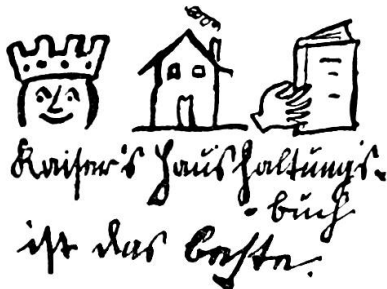 Kaiser's Haushaltungs-
-buch
ist das beste.